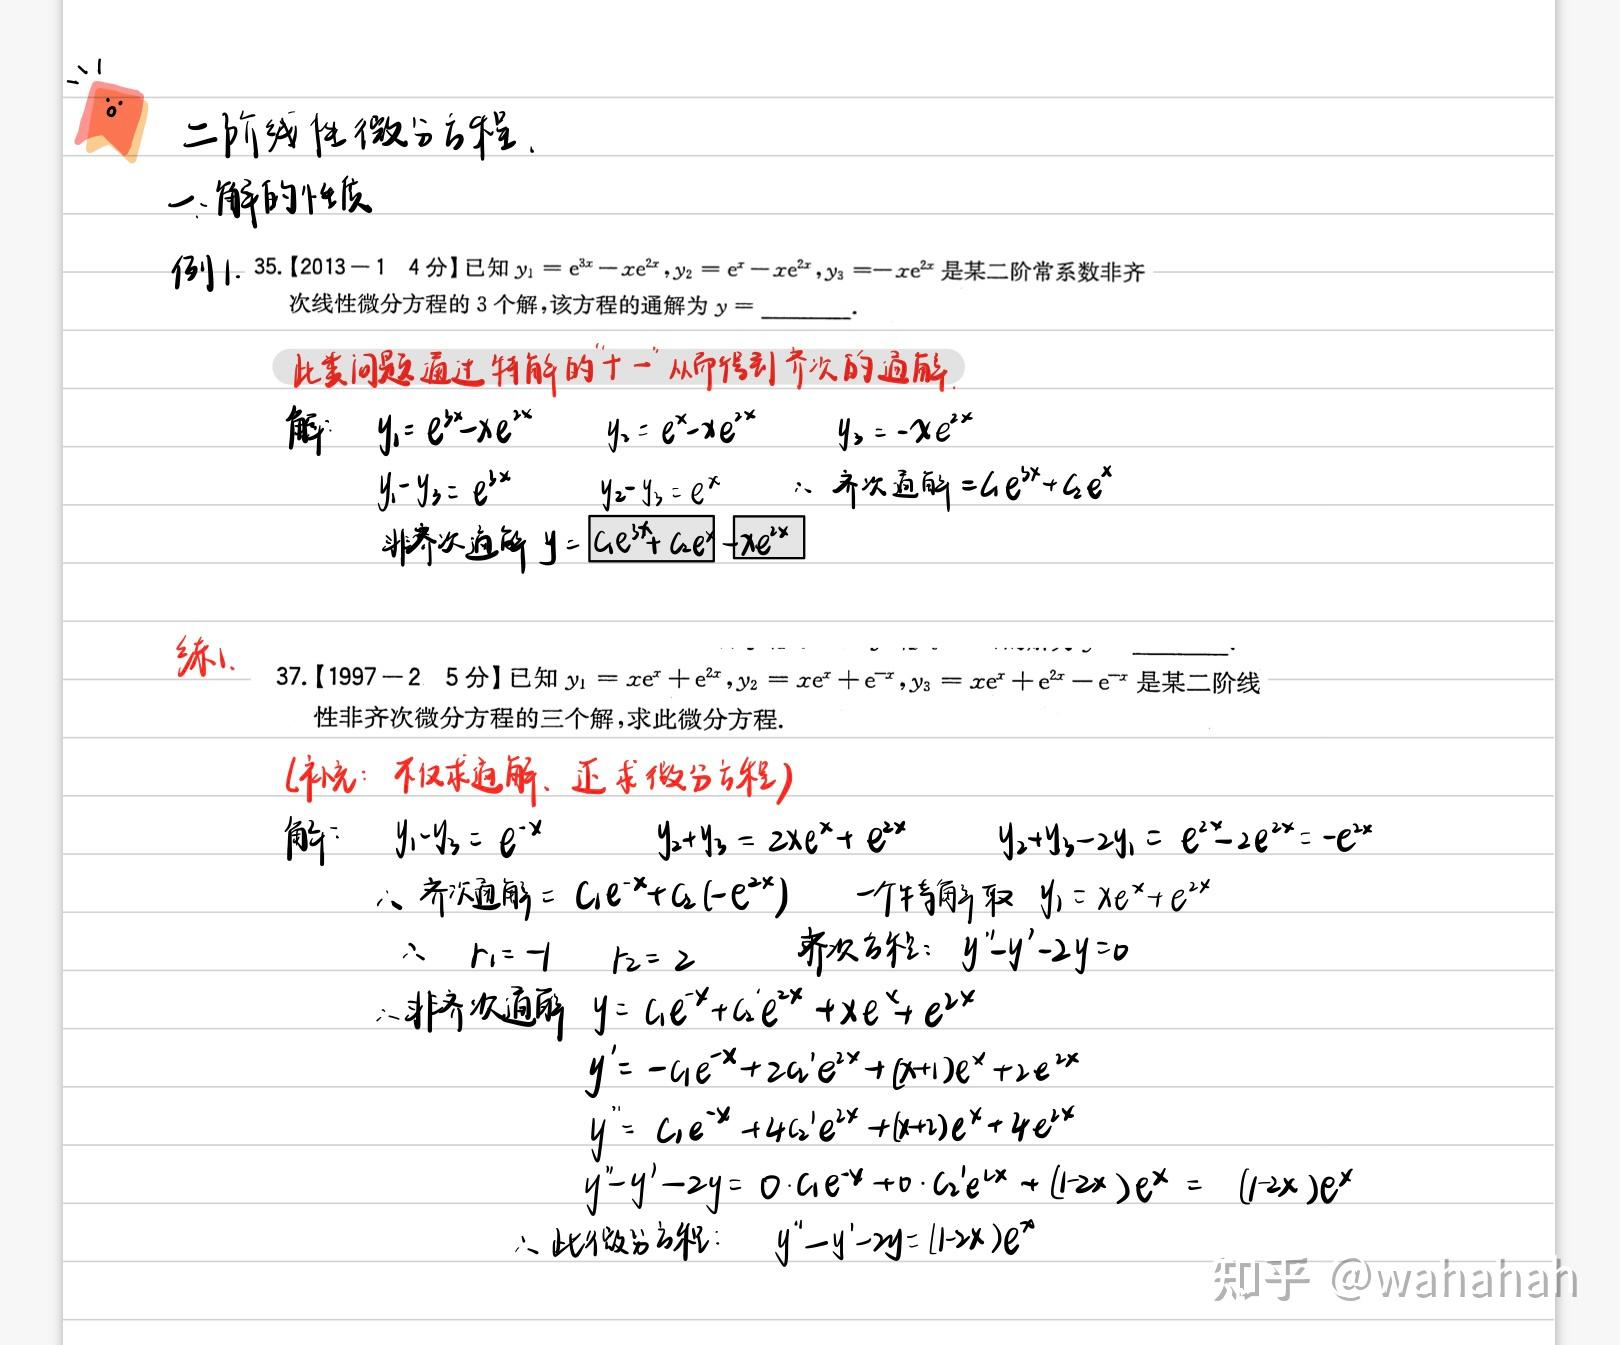 二阶线性微分方程.
一:解的性质
例1. 35.【2013-1 4分】已知 y₁ = e³ˣ − xe²ˣ, y₂ = eˣ − xe²ˣ, y₃ = −xe²ˣ 是某二阶常系数非齐
次线性微分方程的3个解,该方程的通解为 y = ______.
此类问题通过特解的"+ −"从而得到齐次的通解.
解: y₁ = e³ˣ − xe²ˣ y₂ = eˣ − xe²ˣ y₃ = −xe²ˣ
y₁ − y₃ = e³ˣ y₂ − y₃ = eˣ ∴ 齐次通解 = C₁e³ˣ + C₂eˣ
非齐次通解 y = C₁e³ˣ + C₂eˣ − xe²ˣ
练1.
37.【1997-2 5分】已知 y₁ = xeˣ + e²ˣ, y₂ = xeˣ + e⁻ˣ, y₃ = xeˣ + e²ˣ − e⁻ˣ 是某二阶线
性非齐次微分方程的三个解,求此微分方程.
(补充: 不仅求通解、还求微分方程)
解: y₁ − y₃ = e⁻ˣ y₂ + y₃ = 2xeˣ + e²ˣ y₂ + y₃ − 2y₁ = e²ˣ − 2e²ˣ = −e²ˣ
∴ 齐次通解 = C₁e⁻ˣ + C₂(−e²ˣ) 一个特解取 y₁ = xeˣ + e²ˣ
∴ r₁ = −1 r₂ = 2 齐次方程: y'' − y' − 2y = 0
∴ 非齐次通解 y = C₁e⁻ˣ + C₂'e²ˣ + xeˣ + e²ˣ
y' = −C₁e⁻ˣ + 2C₂'e²ˣ + (x+1)eˣ + 2e²ˣ
y'' = C₁e⁻ˣ + 4C₂'e²ˣ + (x+2)eˣ + 4e²ˣ
y'' − y' − 2y = 0·C₁e⁻ˣ + 0·C₂'e²ˣ + (1−2x)eˣ = (1−2x)eˣ
∴ 此微分方程: y'' − y' − 2y = (1−2x)eˣ
知乎 @wahahah